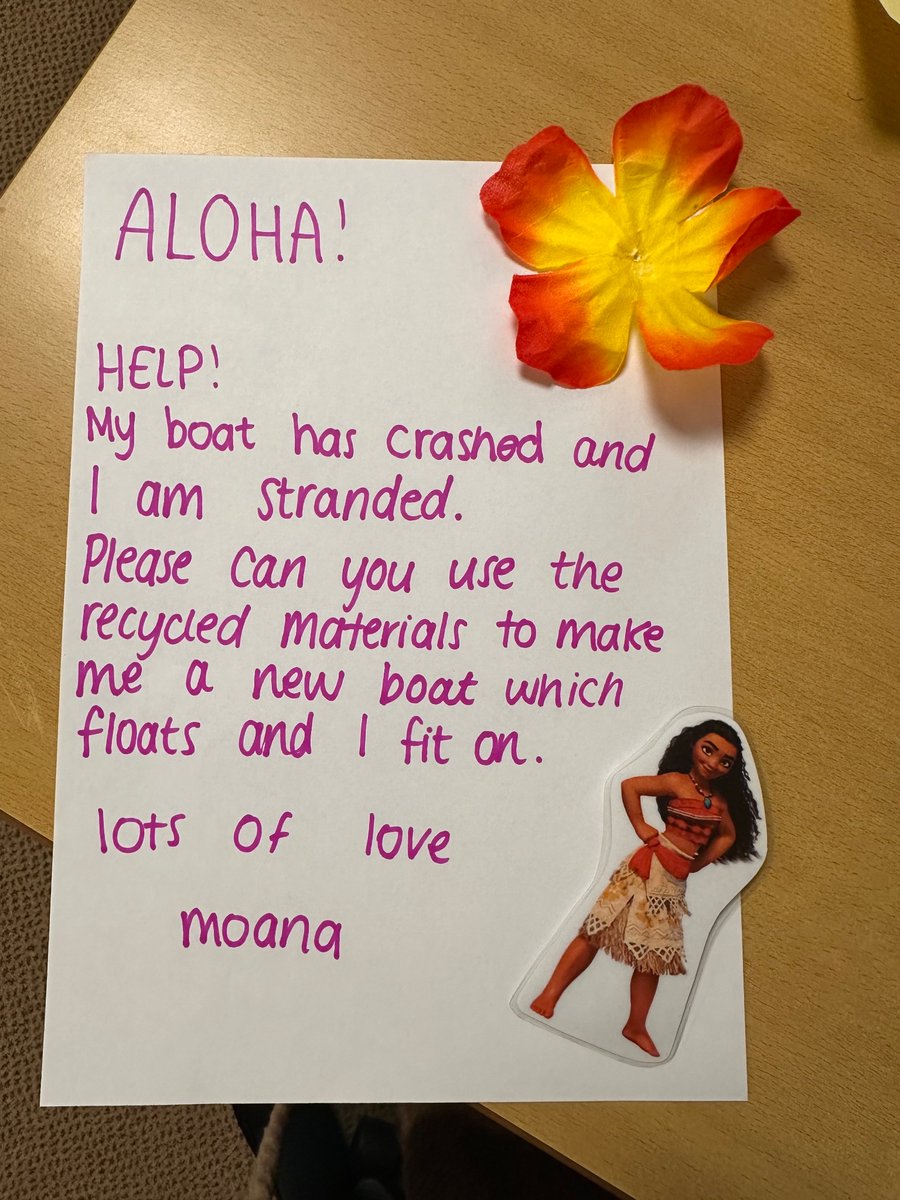 ALOHA!
HELP!
My boat has crashed and
I am stranded.
Please can you use the
recycled materials to make
me a new boat which
floats and I fit on.
lots of love
moana